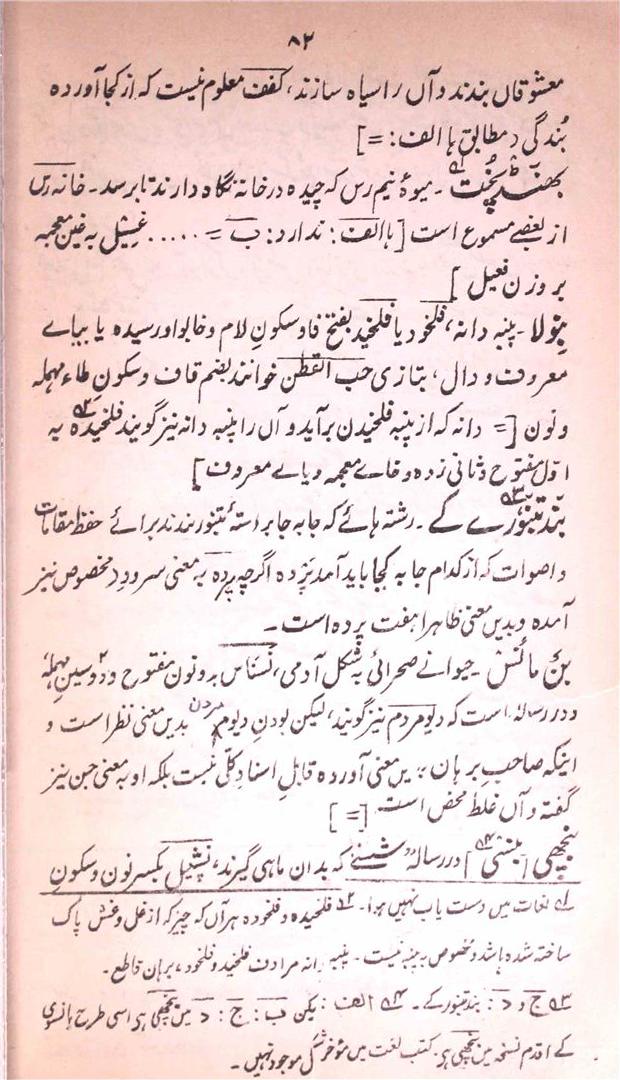 ۸۲
معشوقاں بندند و آں را سیاہ سازند، کفف معلوم نیست کہ از کجا آوردہ
بُندگی د مطابق با الف : =]
بھنڈ پُخت ۱؎ ۔ میوۂ نیم رس کہ چیدہ در خانہ نگاہ دارند تا برسد ۔ خانہ رس
از بعضے مسموع است [ با الف : ندارد : ب = ..... غسیل بہ غین معجمہ
بر وزن فعیل ]
بنولا ۔ پنبہ دانہ، فلخود یا فلخید بفتح فا و سکونِ لام و خا بواو رسیدہ یا بیاے
معروف و دال، بتازی حب القطن خوانند بضم قاف و سکونِ طاء مہملہ
و نون [= دانہ کہ از پنبہ فلخیدن برآید و آں را پنبہ دانہ نیز گویند فلخیدہ ۲؎ بہ
اوّل مفتوح و ثانی زدہ و خاے معجمہ و یاے معروف ]
بند تنبورے کے ۳؎ ۔ رشتہ ہائے کہ جا بہ جا بر دستۂ تنبور بندند برائے حفظ مقامات
و اصوات کہ از کدام جا بہ کجا باید آمد پردہ اگرچہ پردہ بہ معنی سرودِ مخصوص نیز
آمدہ و بدیں معنی ظاہرا ہفت پردہ است ۔
بن مانُس ۔ حیوانے صحرائی بہ شکل آدمی، نسناس بہ و نون مفتوح و دو سین مہملہ
و در رسالہ است کہ دیو مردم نیز گویند، لیکن بودنِ دیو مردم بدیں معنی نظر است و
اینکہ صاحبِ برہان بدیں معنی آوردہ قابلِ اسنادِ کلّی نیست بلکہ او بہ معنی جن نیز
گفتہ و آں غلط محض است [=]
بنچھی [ بنشی ۴؎ ] در رسالہ شستے کہ بداں ماہی گیرند، نشپیل بکسر نون و سکونِ
۱؎ لغات میں دست یاب نہیں ہوا ۔ ۲؎ فلخیدہ و فلخودہ ہر آں کہ چیز کہ از غل و غش پاک
ساختہ شدہ باشد و مخصوص بہ پنبہ نیست ۔ پنبہ دانہ مرادف فلخید و فلخود، برہان قاطع ۔
۳؎ ج و د : بند تنبور کے ۔ ۴؎ الف : لیکن ب : ج : د میں بنچھی ہی اسی طرح ہانسوی
کے اقدم نسخہ میں بنچھی ہی ۔ کتب لغت میں مؤخر شکل موجود نہیں ۔